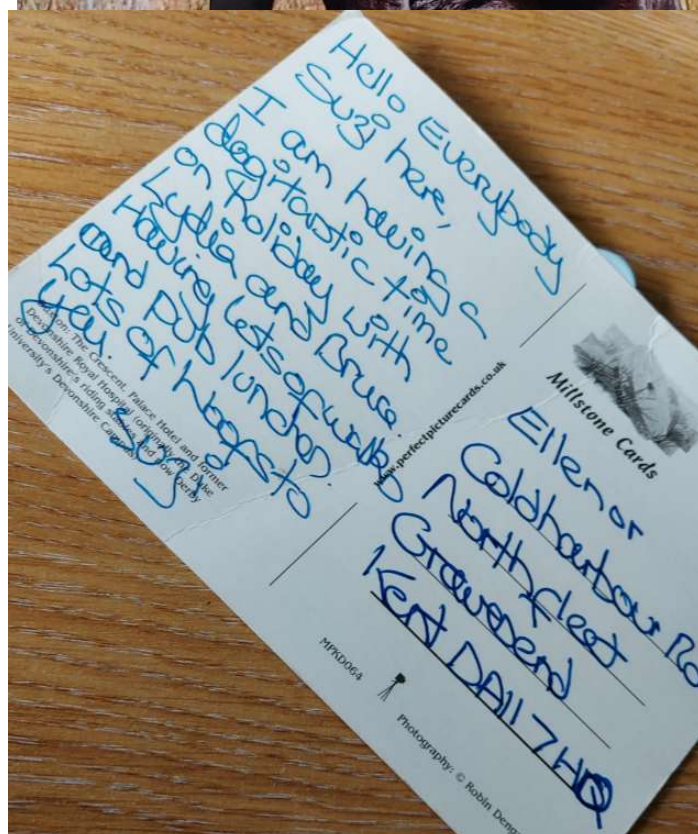 Hello Everybody
Suzi here,
I am having a
dogitastic time
on holiday with
Lydia and Bruce.
Having lots of walks
and pub lunches.
Lots of woofs to
you.
Suzi
Buxton: The Crescent, Palace Hotel and former
Devonshire Royal Hospital (originally the Duke
of Devonshire's riding stables and now Derby
University's Devonshire Campus)
www.perfectpicturecards.co.uk
Millstone Cards
Ellenor
Coldharbour Ro
Northfleet
Gravesend
Kent DA11 7HQ
MPKD064
Photography: © Robin Deng